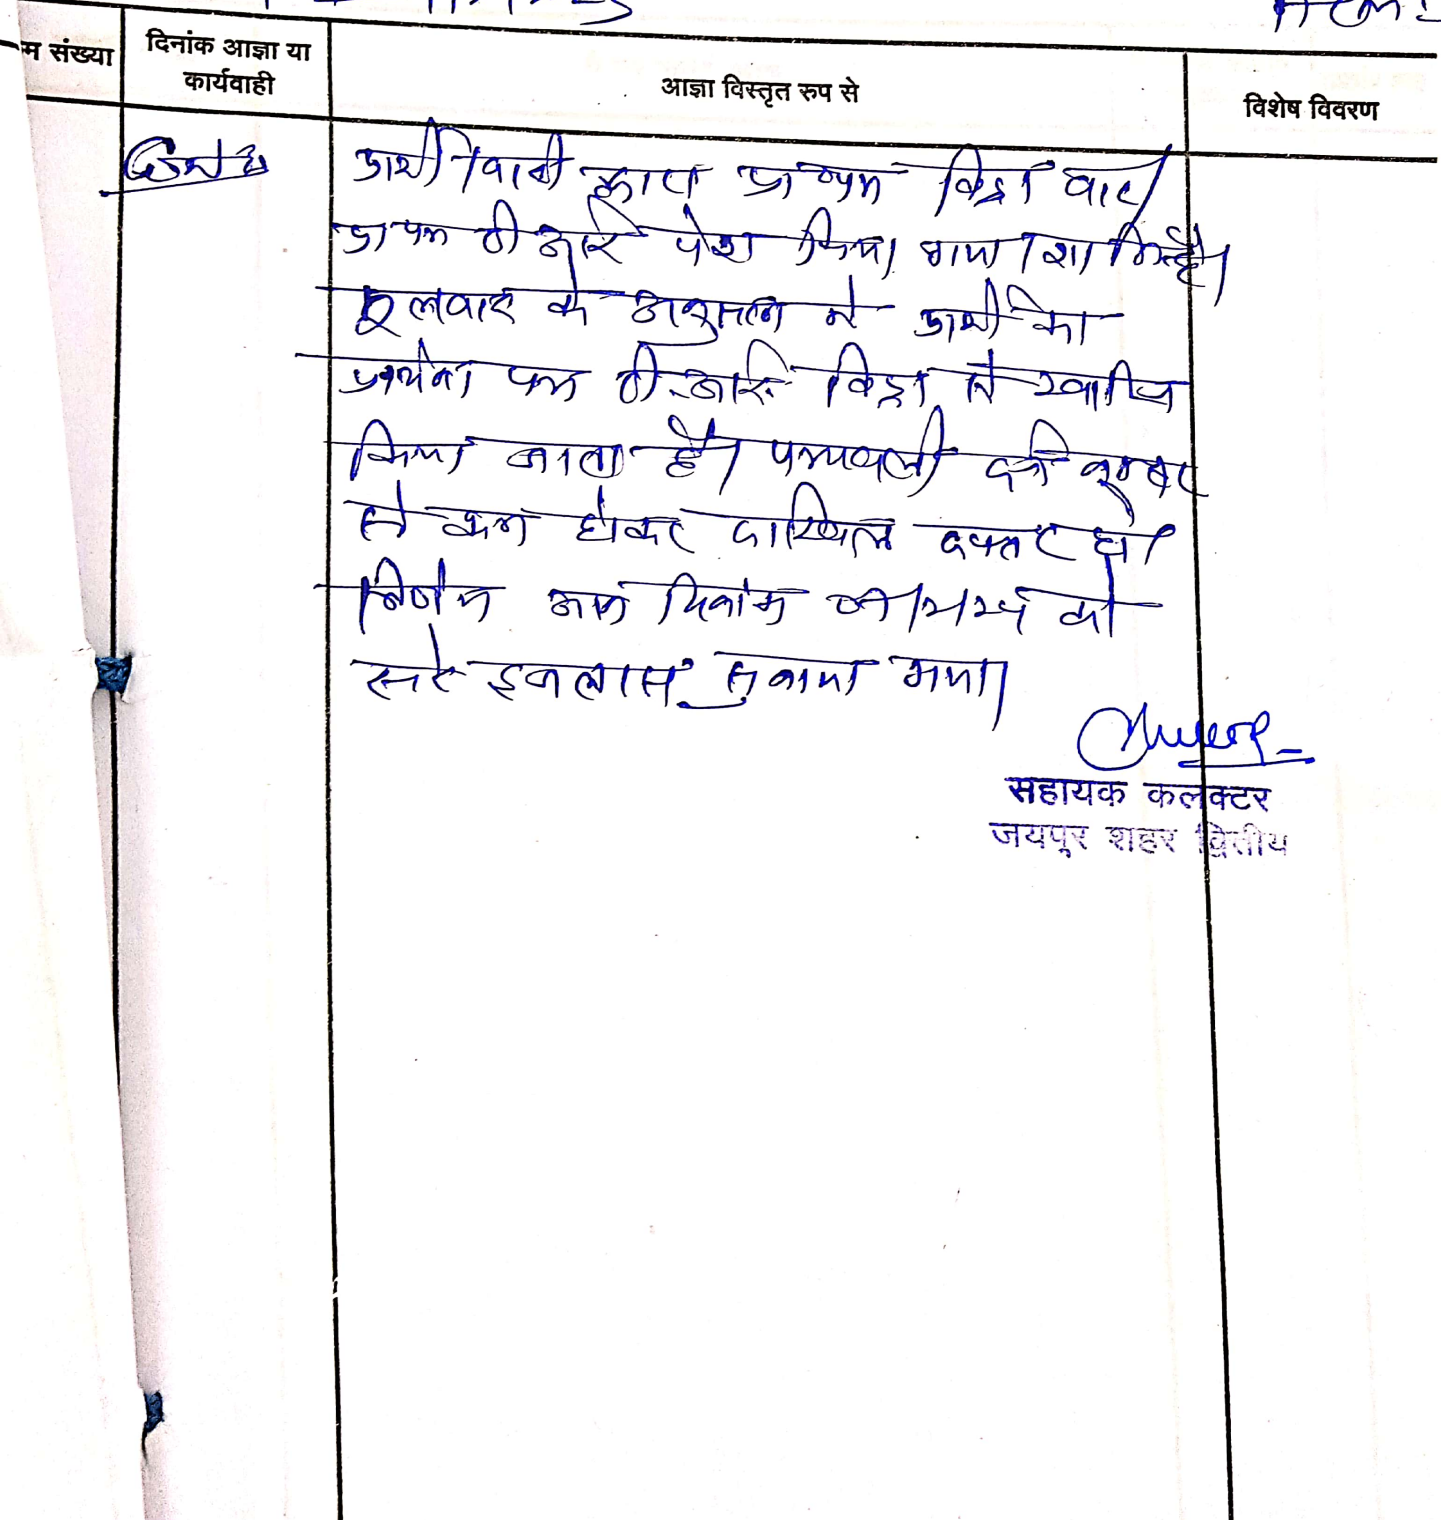 म संख्या
दिनांक आज्ञा या
कार्यवाही
आज्ञा विस्तृत रुप से
विशेष विवरण
प्रार्थी/वादी द्वारा प्रा पत्र विड्रा वास्ते
प्रा पत्र टी आई पेश किया गया। शामिल है।
के अनुसार ने प्रार्थी का
प्रार्थना पत्र टी.आई. विड्रा में खारिज
किया जाता है। पत्रावली नम्बर
से कम होकर दाखिल दफ्तर हो।
निर्णय आज दिनांक को
सरे इजलास सुनाया गया।
सहायक कलक्टर
जयपुर शहर द्वितीय